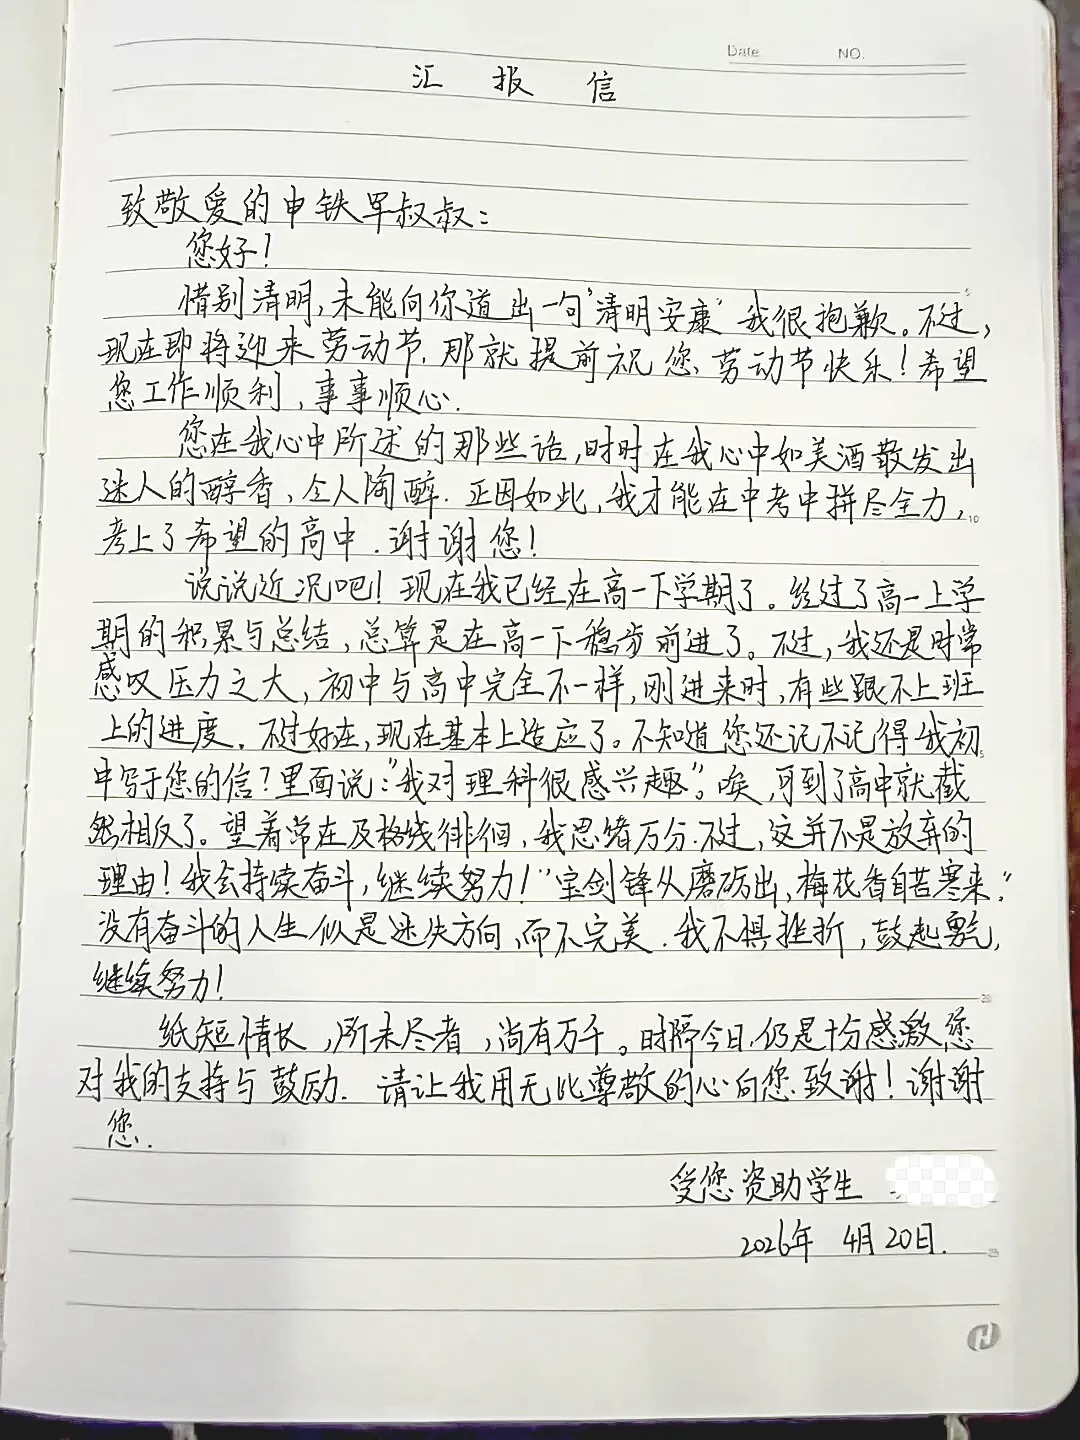 Date NO.
汇报信
致敬爱的申铁军叔叔：
您好！
惜别清明，未能向你道出一句“清明安康”我很抱歉。不过，
现在即将迎来劳动节，那就提前祝您劳动节快乐！希望
您工作顺利，事事顺心。
您在我心中所述的那些话，时时在我心中如美酒散发出
迷人的醇香，令人陶醉。正因如此，我才能在中考中拼尽全力，
10
考上了希望的高中。谢谢您！
说说近况吧！现在我已经在高一下学期了。经过了高一上学
期的积累与总结，总算是在高一下稳步前进了。不过，我还是时常
感叹压力之大，初中与高中完全不一样，刚进来时，有些跟不上班
上的进度。不过好在，现在基本上适应了。不知道您还记不记得我初
中写于您的信？里面说：“我对理科很感兴趣”。唉，可到了高中就截
然相反了。望着常在及格线徘徊，我思绪万分。不过，这并不是放弃的
理由！我会持续奋斗，继续努力！“宝剑锋从磨砺出，梅花香自苦寒来。”
没有奋斗的人生似是迷失方向，而不完美。我不惧挫折，鼓起勇气，
继续努力！
20
纸短情长，所未尽者，尚有万千。时隔今日，仍是十分感激您
对我的支持与鼓励。请让我用无比尊敬的心向您致谢！谢谢
您。
受您资助学生
2026年 4月20日.